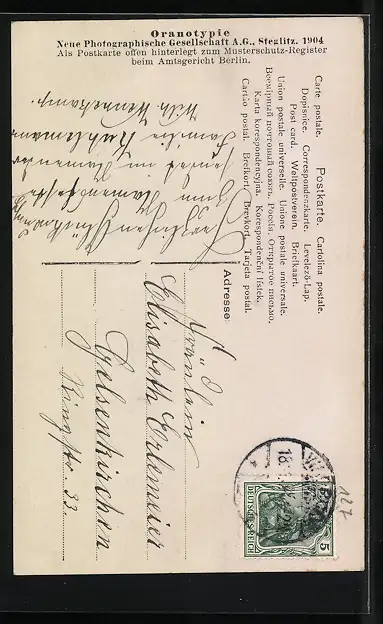 Oranotypie
Neue Photographische Gesellschaft A.G., Steglitz. 1904
Als Postkarte offen hinterlegt zum Musterschutz-Register
beim Amtsgericht Berlin.
Postkarte.
Carte postale. Cartolina postale.
Dopisnice. Correspondenzkarte. Levelező-Lap.
Post card. Weltpostverein. Briefkaart.
Union postale universelle. Unione postale universale.
Всемірный почтовый союзъ. Россія. Открытое письмо.
Karta korespondencyjna. Korespondenční lístek.
Cartão postal. Brefkort. Brevkort. Tarjeta postal.
Adresse:
Fräulein
Elisabeth Erlemeier
Gelsenkirchen
Ringstr. 33.
Herzlichen Glückwunsch
zum Namensfeste
sendet
Familie Kuhlemann
Wilh.
DEUTSCHES REICH
5
18
127